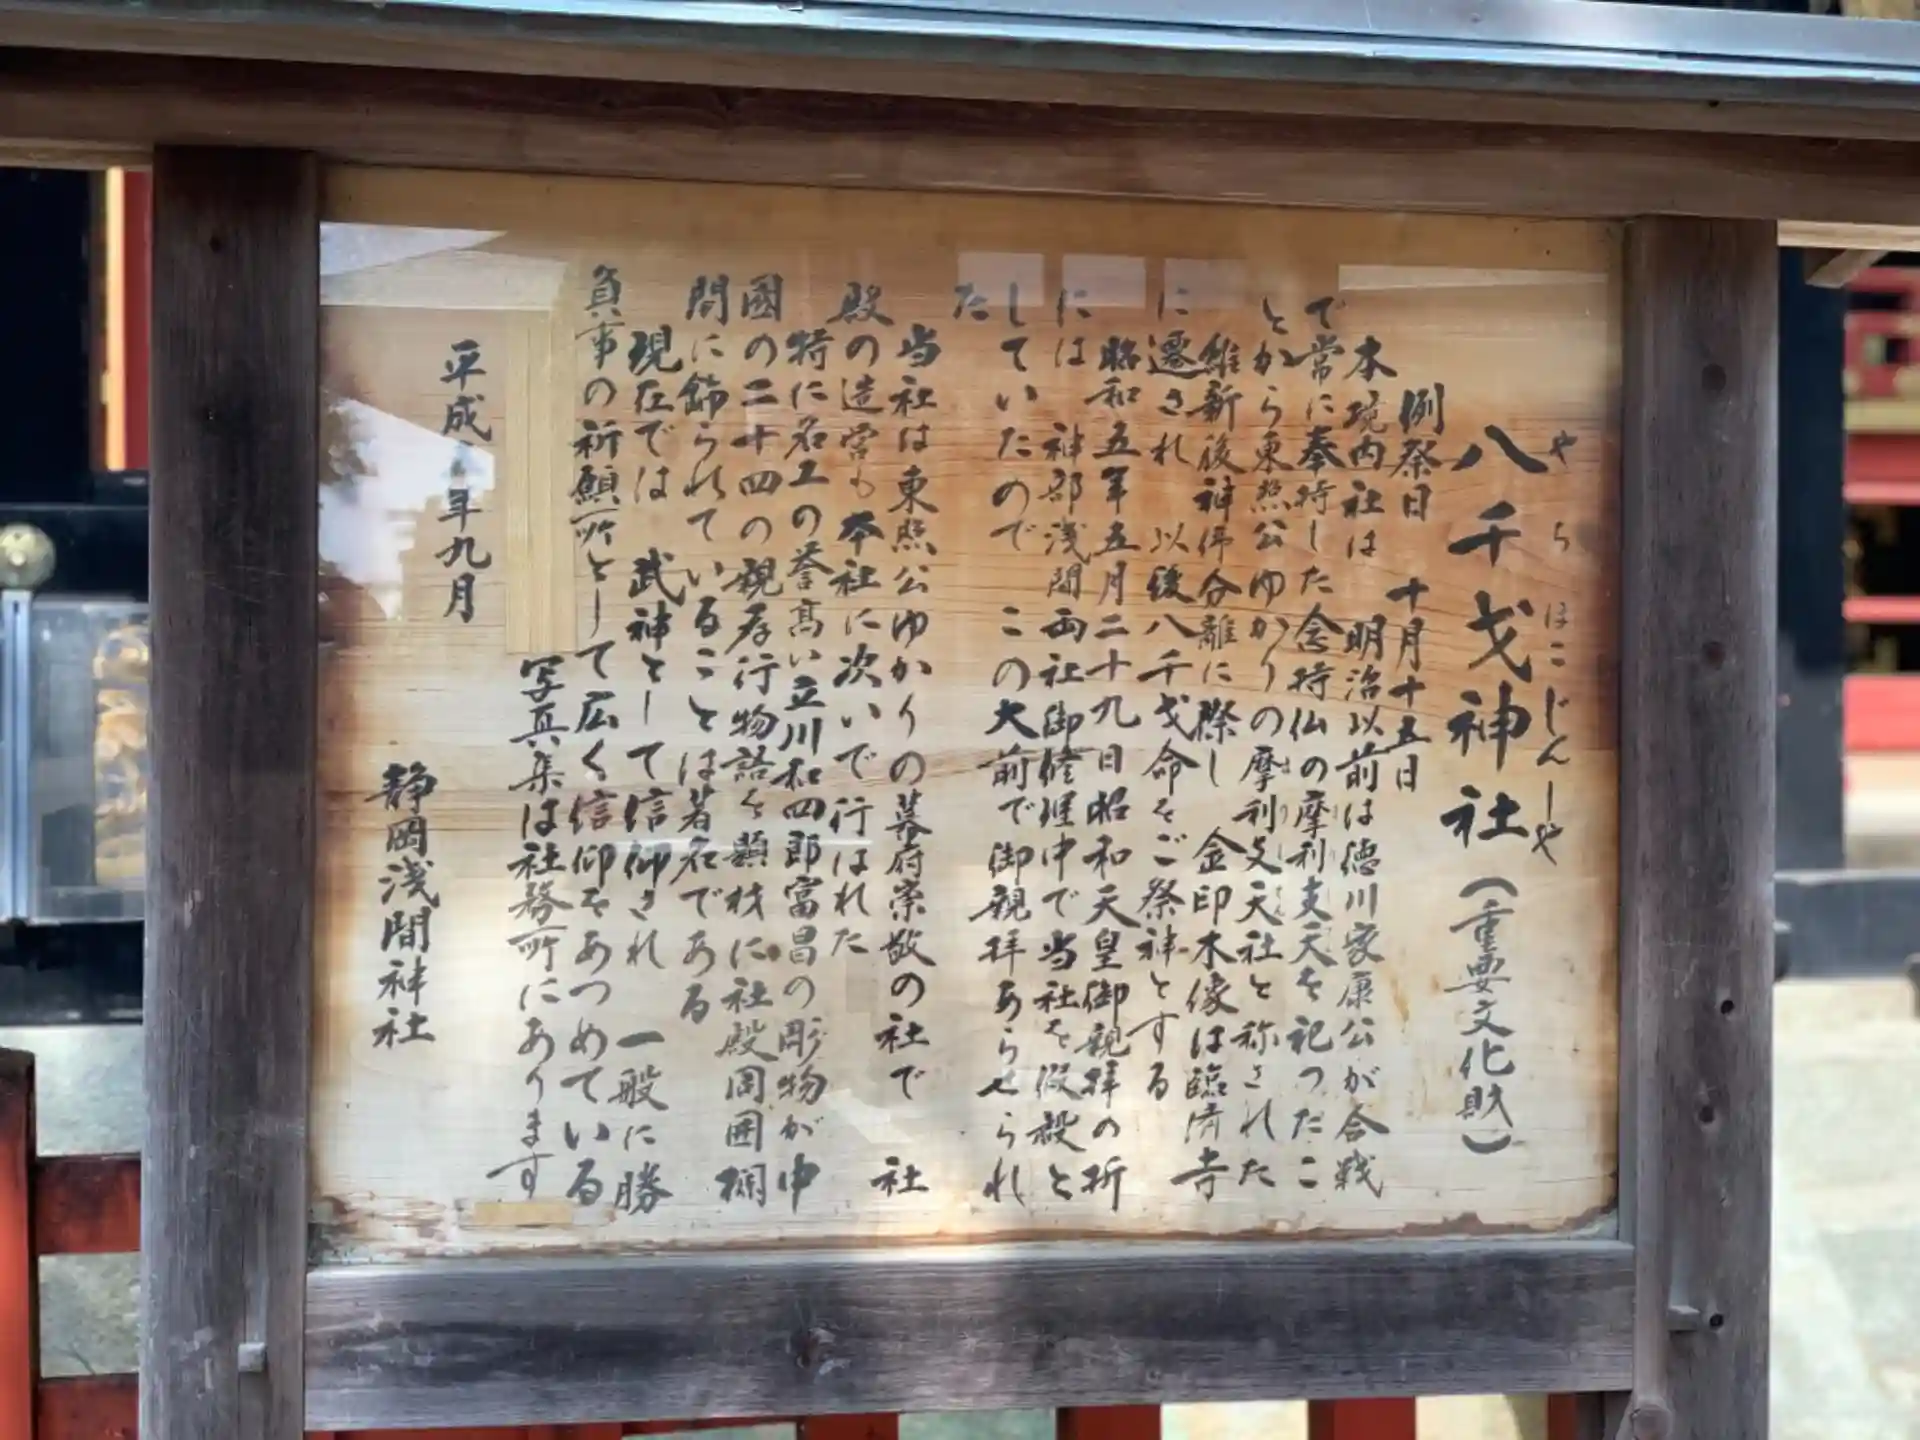 八千戈神社（重要文化財）
やちほこじんしゃ
例祭日　十月十五日
本境内社は　明治以前は徳川家康公が合戦
で常に奉持した念持仏の摩利支天を祀ったこ
とから東照公ゆかりの摩利支天社と称された
維新後神仏分離に際し　金印木像は臨済寺
に遷され　以後八千戈命をご祭神とする
昭和五年五月二十九日昭和天皇御親拝の折
には　神部浅間両社御修理中で当社を仮殿と
していたので　この大前で御親拝あらせられ
た
当社は東照公ゆかりの幕府崇敬の社で　社
殿の造営も本社に次いで行はれた
特に名工の誉高い立川和四郎富昌の彫物が中
國の二十四の親孝行物語を題材に社殿周囲欄
間に飾られていることは著名である
現在では　武神として信仰され　一般に勝
負事の祈願所として広く信仰をあつめている
写真集は社務所にあります
平成　年九月
静岡浅間神社